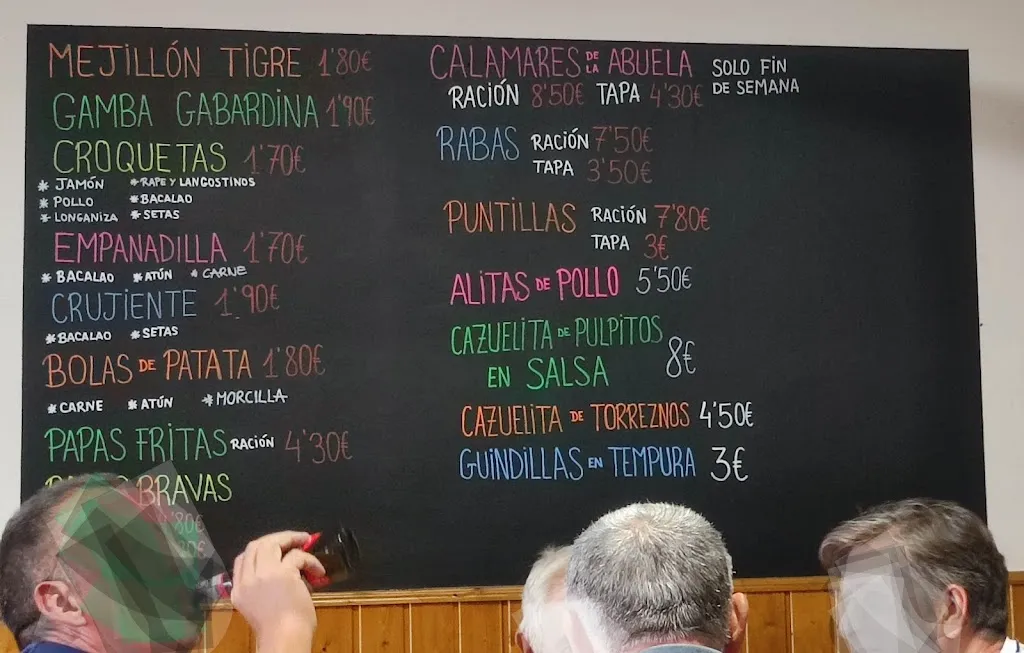 MEJILLÓN TIGRE 1'80€
GAMBA GABARDINA 1'90€
CROQUETAS 1'70€
* JAMÓN * RAPE Y LANGOSTINOS
* POLLO * BACALAO
* LONGANIZA * SETAS
EMPANADILLA 1'70€
* BACALAO * ATÚN * CARNE
CRUJIENTE 1'90€
* BACALAO * SETAS
BOLAS DE PATATA 1'80€
* CARNE * ATÚN * MORCILLA
PAPAS FRITAS RACIÓN 4'30€
BRAVAS
CALAMARES DE LA ABUELA SOLO FIN DE SEMANA
RACIÓN 8'50€ TAPA 4'30€
RABAS RACIÓN 7'50€
TAPA 3'50€
PUNTILLAS RACIÓN 7'80€
TAPA 3€
ALITAS DE POLLO 5'50€
CAZUELITA DE PULPITOS
EN SALSA 8€
CAZUELITA DE TORREZNOS 4'50€
GUINDILLAS EN TEMPURA 3€